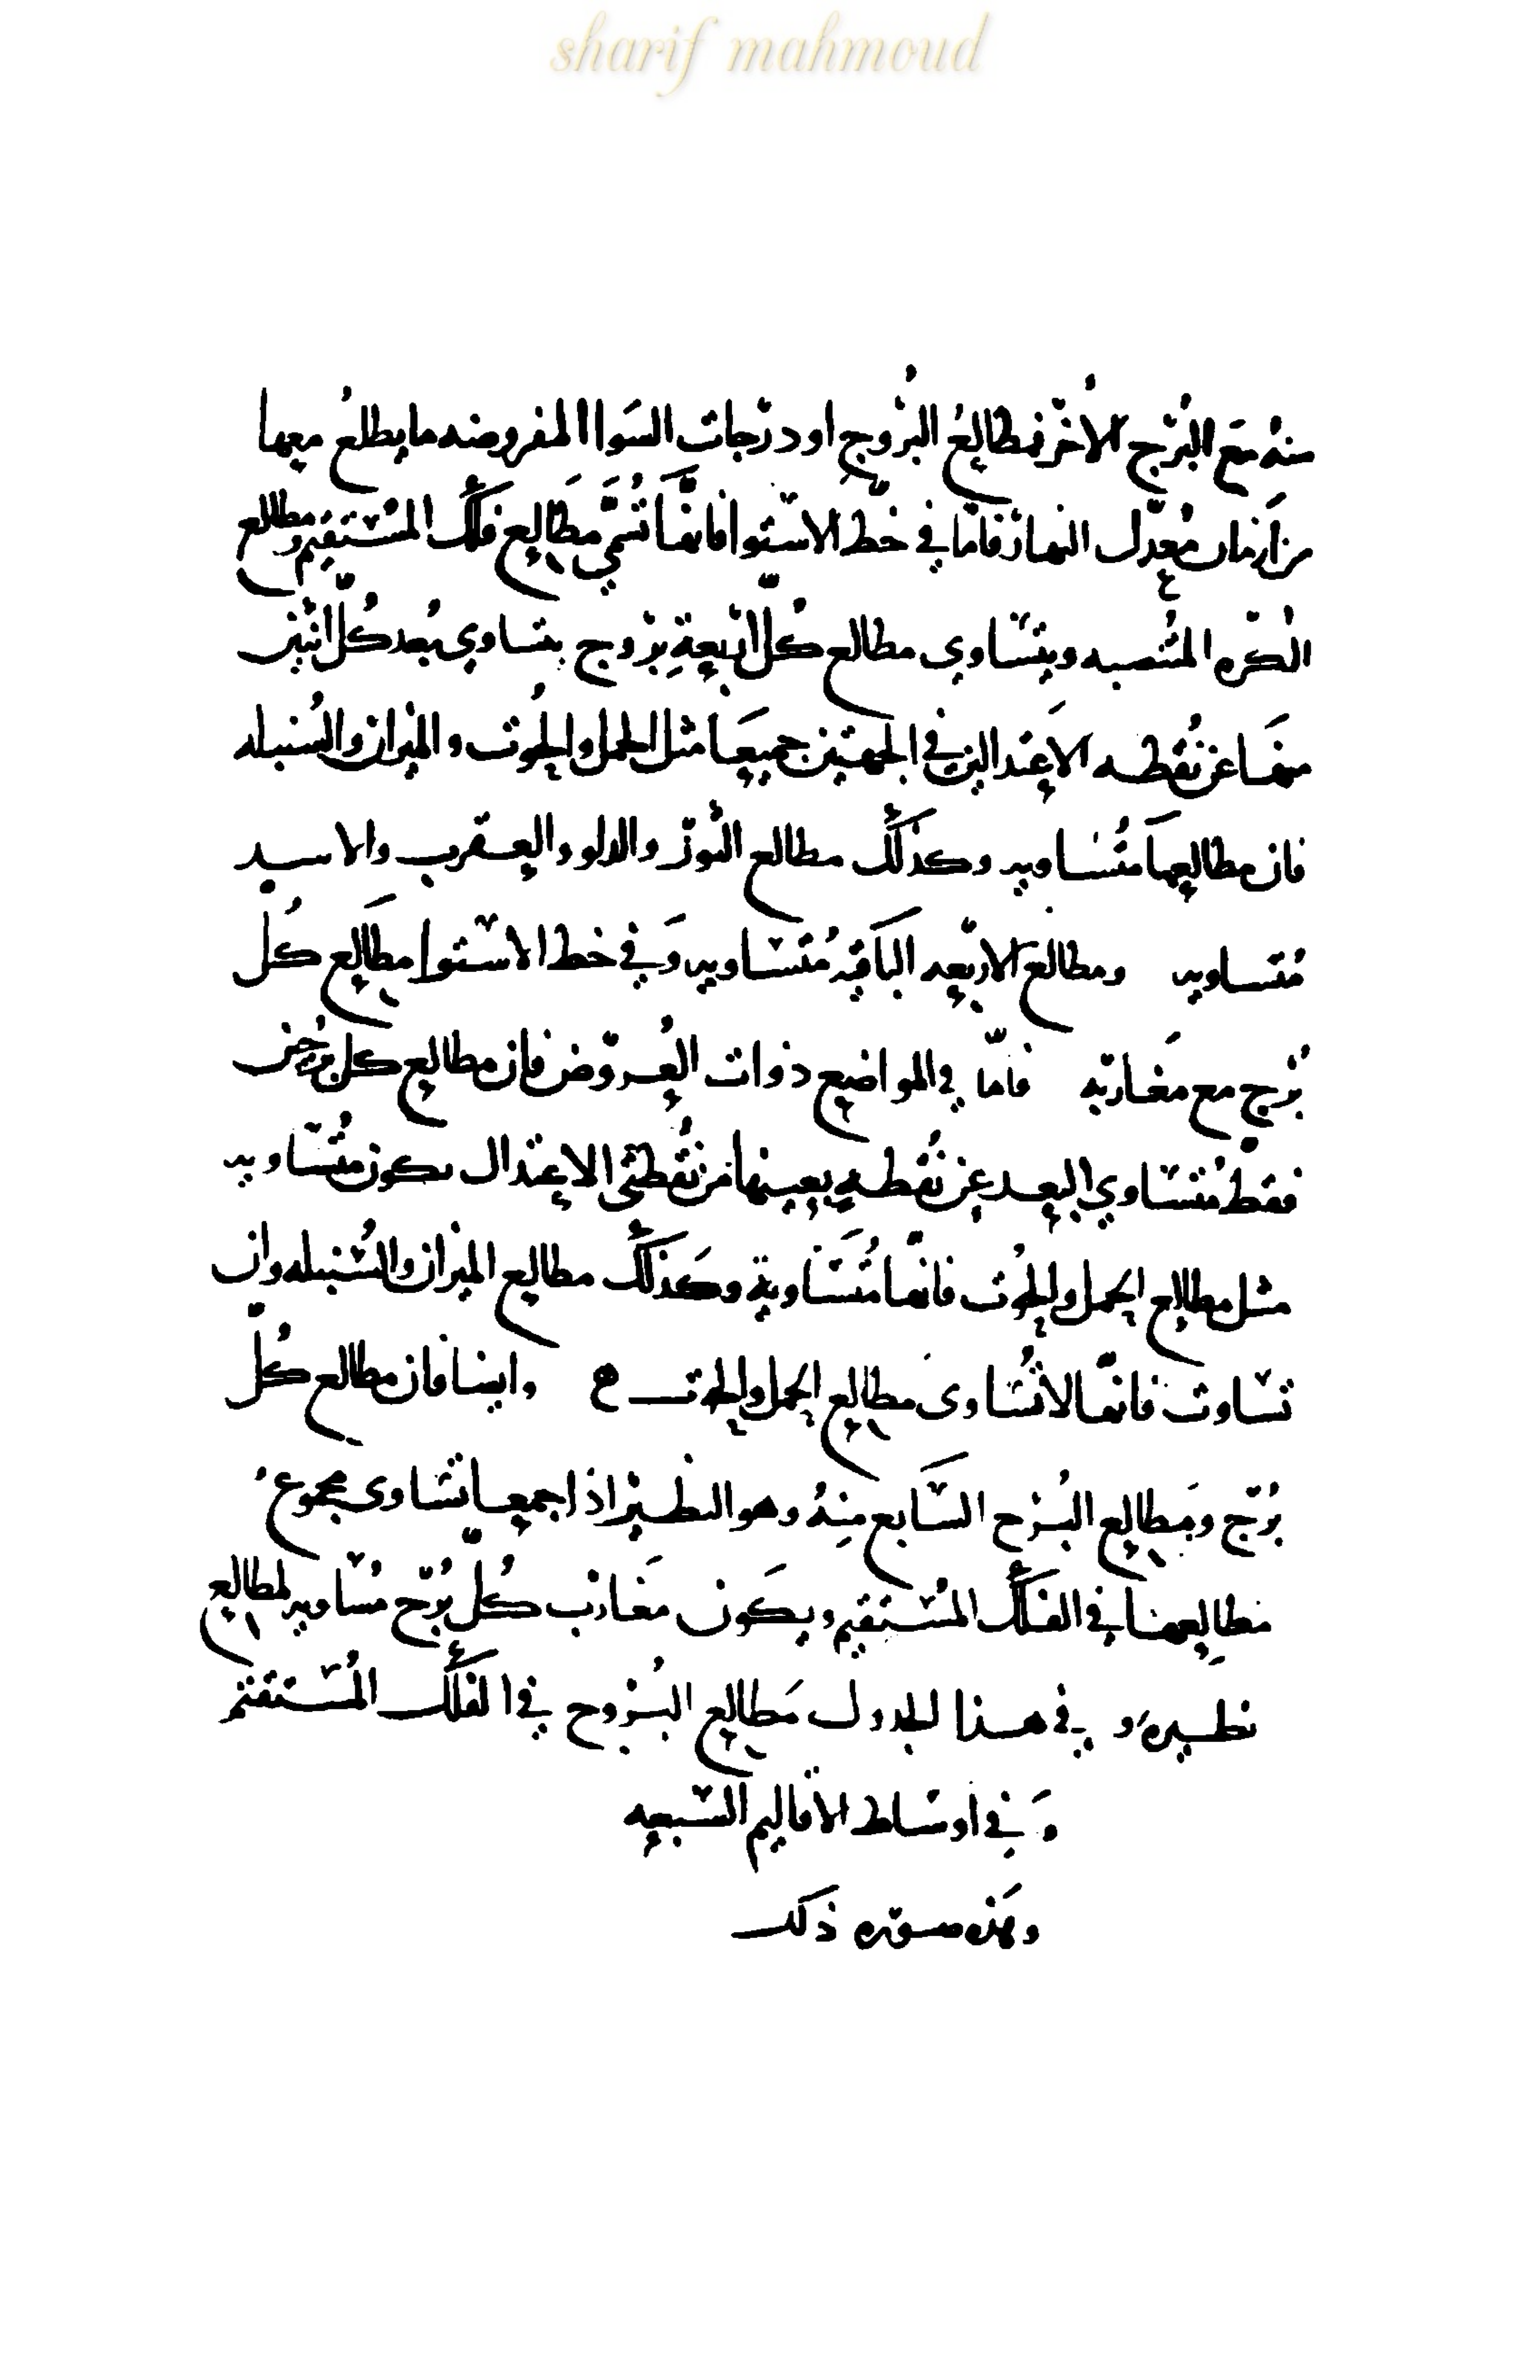 sharif mahmoud
منهُ مَعَ البُرج الأخر فمطالعُ البُروج او درجات السَوا المفروضه ما يطلعُ معها
من ازمان مُعدّل النهار فامّا في خطّ الاستوا فانهَا تُسَمَّى مَطَالِع فلَك المُستقيم ومطالع
الكره المُنتصبه ويتساوي مطالع كُلّ اربعةِ بروج بتساوي بُعد كُلّ اثنين
منهَا عن نُقطه الاعتدالين في الجهتين جميعَا مثل الحمل والحُوت والميزان والسُنبله
فان مطالعهمَا مُتساويه وكذلَك مطالع الثور والدلو والعقرب والاسد
مُتساويه ومطالع الاربعه البَاقيه مُتسَاويه وَفي خط الاستوا مطَالع كُل
بُرج مع مغَاربه فامّا في المواضع ذوات العُروض فان مطالع كل بُرجين
فقط مُتسَاوي البعد عن نُقطهٍ بعينها من نُقطتي الاعتدال تكون مُتسَاويه
مثل مطالع الحمل والحُوت فانّها مُتسَاوية وكَذلَك مطالع الميزان والسُنبله وان
تسَاوت فانّها لا تُسَاوى مَطالع الحمل والحوت ه وايضا فان مطالع كُلّ
بُرج ومَطالع البُرج السَابع مِنهُ وهو النظير اذا جمعا تسَاوى مجموع
مطالعهما في الفلَك المُستقيم ويكَون مغَارب كُلّ بُرج مُسَاويه لمطالع
نظيره و في هذا الجدول مَطالع البُروج في الفلَك المُستقيم
وَ في اوسَاط الاقاليم السَبعه
وهَذه صوره ذلَك